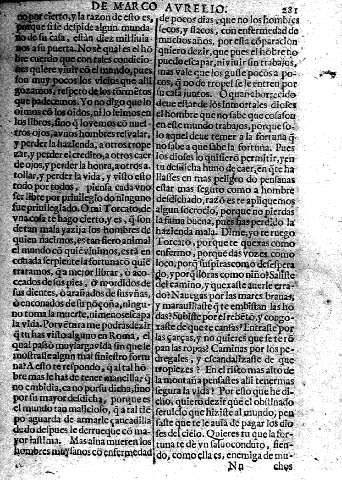 DE MARCO AVRELIO. 281
no por cierto, y la razon de esto es,
porque si se despide algun munda-
no de su casa, estan diez mil vnia
nos a su puerta. No se qual es el hõ
bre cuerdo que con tales condicio
nes quiere viuir en el mundo, pues
son muy pocos los vicios que alli
gozamos, respeto de los tormẽtos
que padecemos. Yo no digo lo que
oimos con los oidos, ni lo leimos en
los libros, sino q̃ lo vemos con nues
tros ojos, a vnos hombres resvalar,
y perder la hazienda, a otros trope
zar, y perder el credito, a otros caer
de ojos, y perder la honra, a otros a-
tollar, y perder la vida, y visto esto
todo por todos, piensa cada vno
ser libre por priuilegio do ninguno
fue priuilegiado. O mi Torcato de
vna cosa te hago cierto, y es, q̃ son
de tan mala yazija los hombres de
quien nacimos, es tan fiero animal
el mundo cõ quiẽ viuimos, està en
conada serpiente la fortuna cõ quiẽ
tratamos, q̃ a mejor librar, o aco-
ceados de sus pies, o mordidos de
sus dientes, o arañados de sus vñas,
o enconados de su põçoña, ningu-
no toma la muerte, ni menos escapa
la vida. Por vẽtura me podràs dezir
q̃ tu has visto alguno en Roma, el
qual passò muy larga vida sin que le
mostrasse algun dia siniestro la fortu
na? A esto te respondo, q̃ al tal hõ
bre mas le has de tener manzilla, q̃
no embidia, ca no por su dicha, sino
por su mayor desdicha, porque es
el mundo tan malicioso, q̃ a tal tiẽ
po aguarda de armarle çancadilla
de do despues le derrueque cõ ma
yor lastima. Mas aina mueren los
hombres muy sanos cõ enfermedad
de pocos dias, que no los hombres
secos, y flacos, con enfermedad de
muchos años, por esta cõparacion
quiero dezir, que pues el hõbre no
puedo escapar, ni viuir sin trabajos,
mas vale que los guste pocos a po-
cos, q̃ no de tropel se le entren por
su casa juntos. O quan aborrecido
deue estar de los inmortales dioses
el hombre que no sabe que cosa son
en este mundo trabajos, porque so-
lo aquel deue tener a la fortuna q̃
no sabe a que sabe la fortuna. Pues
los dioses lo quisierõ permitir, y en
tu desdicha huuo de caer, en q̃ te ha
llasses en mas peligro do pensauas
estar mas seguro como a hombre
desdichado, razõ es te apliquemos
algun socrocio, porque no pierdas
la fama buena, pues has perdido la
hazienda mala. Dime, yo te ruego
Torcato, porque te quexas como
enfermo, porque das vozes, como
loco, porq̃ suspiras como desespera
do, y porq̃ lloras como niño? Saliste
del camino, y quexaste auerle erra-
do? Nauegas por las mares brauas,
y marauillaste q̃ te embistan las hõ
das? Subiste por el rebẽtõ, y congo-
xaste de que te cansas? Entraste por
las çarças, y no quieres que se te rõ
pan las ropas? Caminas por los pe-
dregales, y escandalizaste de que
tropiezes? En el risco mas alto de
la montaña pensaste alli tenermas
segura la vida? Por esto que he di-
cho, quiero dezir que el obstinado
seruicio que hiziste al mundo, pen
saste que te le auia de pagar los dio
ses del cielo. Quieres tu que la for-
tuna te dè vn saluo conduto, sien-
do, como ella es, enemiga de mu-
Nn chos